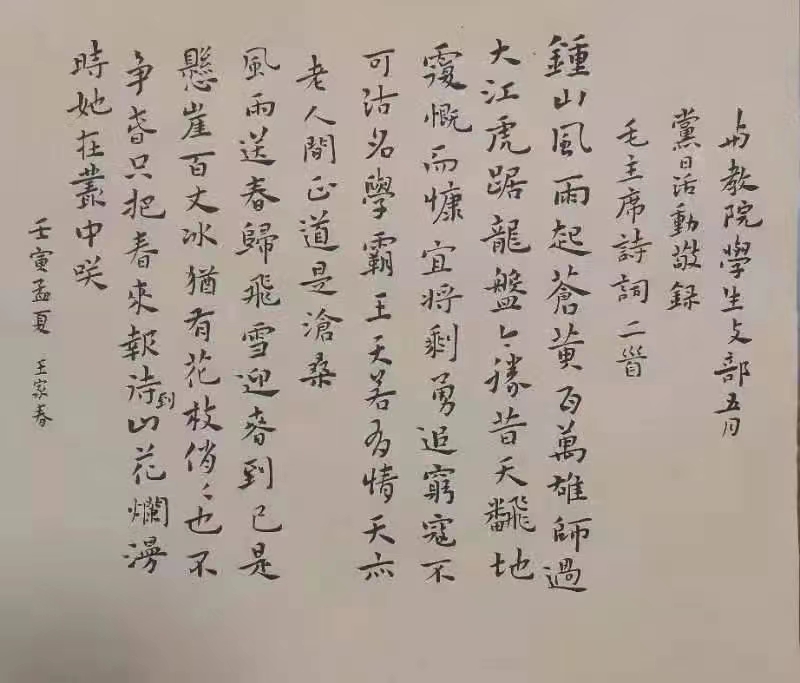 与教院學生支部五月
黨日活動敬録
毛主席詩詞二首
鍾山風雨起蒼黄百萬雄師過
大江虎踞龍盤今勝昔天翻地
覆慨而慷宜將剩勇追窮寇不
可沽名學霸王天若有情天亦
老人間正道是滄桑
風雨送春歸飛雪迎春到已是
懸崖百丈冰猶有花枝俏〻也不
争春只把春來報待到山花爛漫
時她在叢中咲
壬寅孟夏 王家春